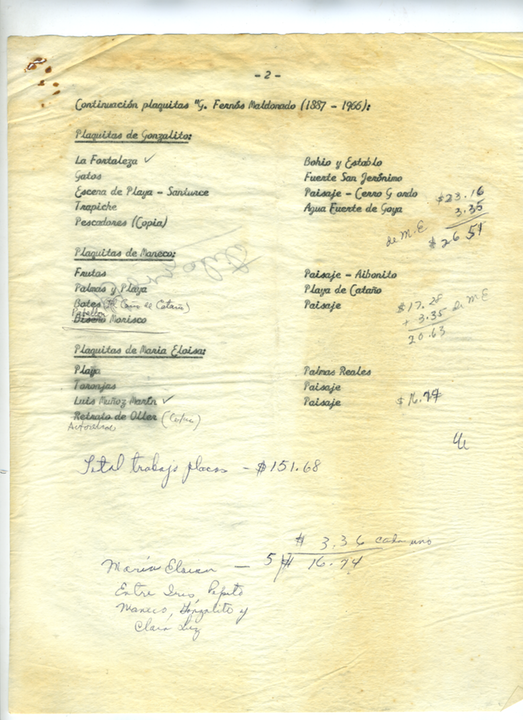 - 2 -
Continuación plaquitas "G. Fernós Maldonado (1887 - 1966):
Plaquitas de Gonzalito:
La Fortaleza ✓ Bohío y Establo
Gatos Fuerte San Jerónimo
Escena de Playa - Santurce Paisaje - Cerro G ordo $23.16
Trapiche Agua Fuerte de Goya 3.35
Pescadores (Copia) de M.E $26 51
Plaquitas de Maneco:
Frutas Paisaje - Aibonito
Palmas y Playa Playa de Cataño
Botes Cataño) Paisaje $17.28
Diseño Morisco + 3.35 de M.E
20.63
Plaquitas de María Eloisa:
Playa Palmas Reales
Toronjas Paisaje
Luis Muñoz Marín ✓ Paisaje $16.94
Retrato de Oller (Copia)
Total trabajo placas - $151.68
$ 3.36 cada uno
María Eloisa — 5 16.94
Entre Iris, Pepito
Maneco, Gonzalito y
Clara Luz